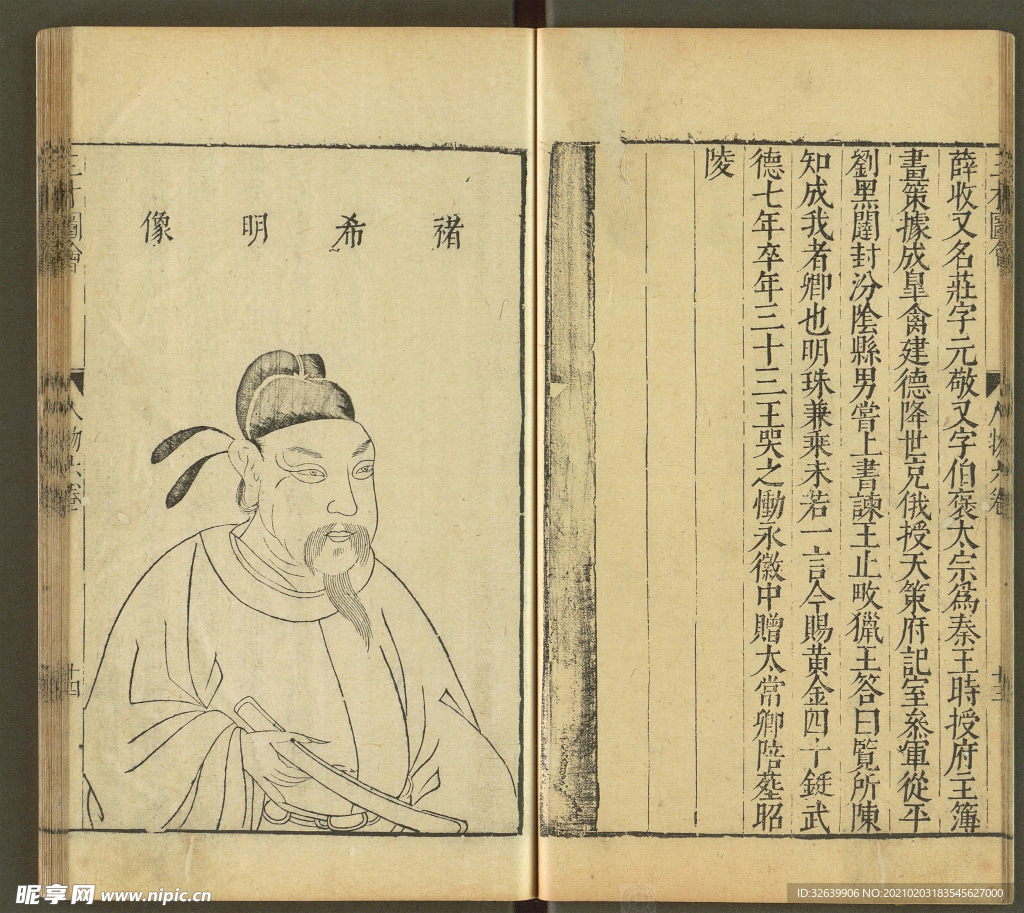 三才圖會
薛收又名莊字元敬又字伯褒太宗爲秦王時授府主簿
畫策據成臯禽建德降世充俄授天策府記室叅軍從平
劉黑闥封汾陰縣男嘗上書諫王止畋獵王答曰覽所陳
知成我者卿也明珠兼乗未若一言今賜黃金四十鋌武
德七年卒年三十三王哭之慟永徽中贈太常卿陪塟昭
陵
人物六卷
十三
褚希明像
三才圖會
人物六卷
十四
昵享网 www.nipic.cn
ID:32639906 NO:20210203183545627000